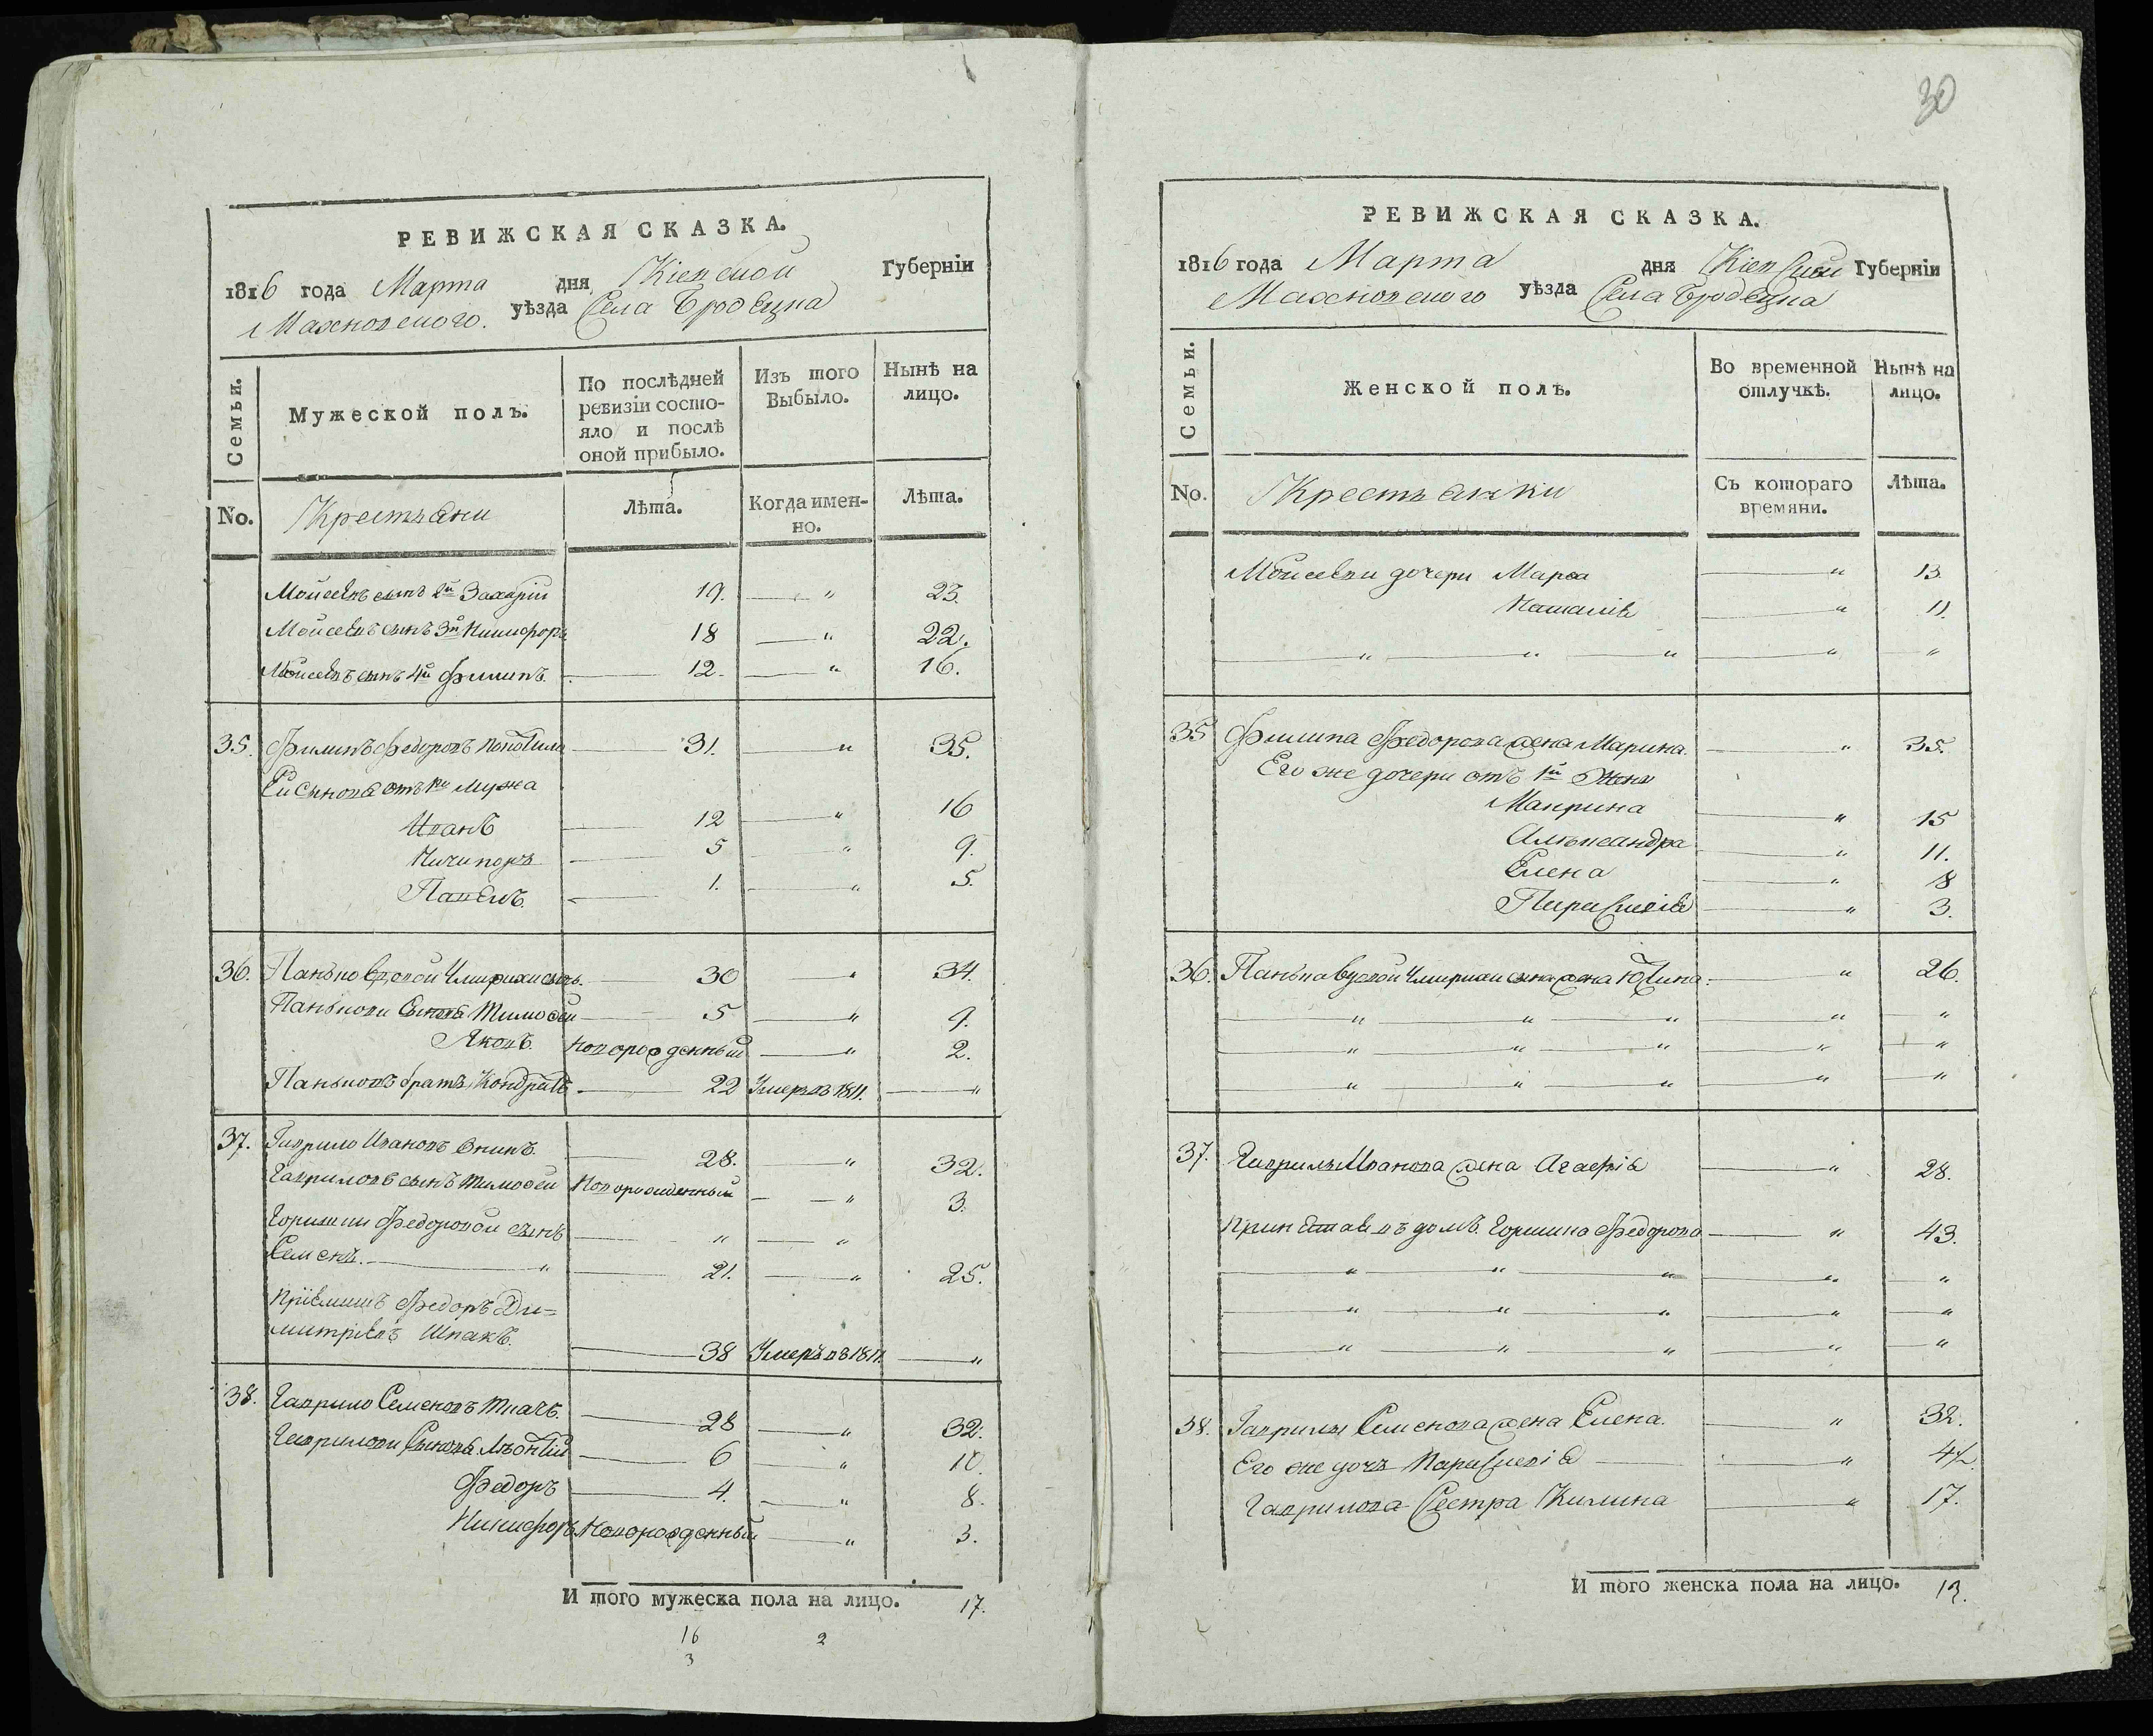 30
РЕВИЖСКАЯ СКАЗКА.
1816 года Марта дня Кіевской Губерніи
Махновского. уѣзда Села Бродецка
Семьи.
Мужеской полъ.
По послѣдней ревизіи состо-
яло и послѣ
оной прибыло.
Изъ того
Выбыло.
Нынѣ на
лицо.
No.
Крестьяни
Лѣта.
Когда имен-
но.
Лѣта.
Моисеевъ сынъ 2й Захарій 19. — " 23.
Моисеевъ сынъ 3й Никифоръ 18 — " 22.
Моисеевъ сынъ 4й Филипъ. 12. — " 16.
35. Филипъ Федоровъ 31. — " 35.
Ей Сынове отъ 1го мужа
Иванъ 12 — " 16
Ничипоръ 5 — " 9.
Павелъ. 1. — " 5.
36. Панько вдовой Чмирихи сынъ. 30 — " 34.
Паньковы Сынове Тимофей 5 — " 9.
Яковъ. новорожденный — " 2.
Паньковъ братъ Кондратъ 22 Умеръ въ 1811. — "
37. Гаврило Ивановъ 28. — " 32.
Гавриловъ сынъ Тимофей Новорожденный — " 3.
Горпини Федоровой сынъ — " — "
Семенъ. — " 21. — " 25.
Пріемышъ Федоръ Ди=
митріевъ Шпакъ. 38 Умеръ въ 1811. — "
38. Гаврило Семеновъ Ткачъ. 28 — " 32.
Гавриловы Сынове Леонтій 6 — " 10.
Федоръ 4. — " 8.
Никифоръ Новорожденный — " 3.
И того мужеска пола на лицо. 17.
16 2
3
РЕВИЖСКАЯ СКАЗКА.
1816 года Марта дня Кіевской Губерніи
Махновского уѣзда Села Бродецка
Семьи.
Женской полъ.
Во временной
отлучкѣ.
Нынѣ на
лицо.
No.
Крестьянки
Съ котораго
времяни.
Лѣта.
Моисеевы дочери Марфа — " 13.
Наталія — " 11.
— " — " — " — " — "
35 Филипа Федорова жена Марина. — " 35.
Его же дочери отъ 1й жены
Макрина — " 15
Александра — " 11.
Елена — " 8
Параскевія — " 3.
36. Панька вдовой Чмирихи сына жена Юлина. — " 26.
— " — " — " — " — "
— " — " — " — " — "
— " — " — " — " — "
37. Гаврилы Иванова жена Агафія — " 28.
въ домъ. Горпина Федорова — " 43.
— " — " — " — " — "
— " — " — " — " — "
— " — " — " — " — "
38. Гаврилы Семенова жена Елена. — " 32.
Его же дочь Параскевія — " 4
Гаврилова Сестра Килина — " 17.
И того женска пола на лицо. 13.